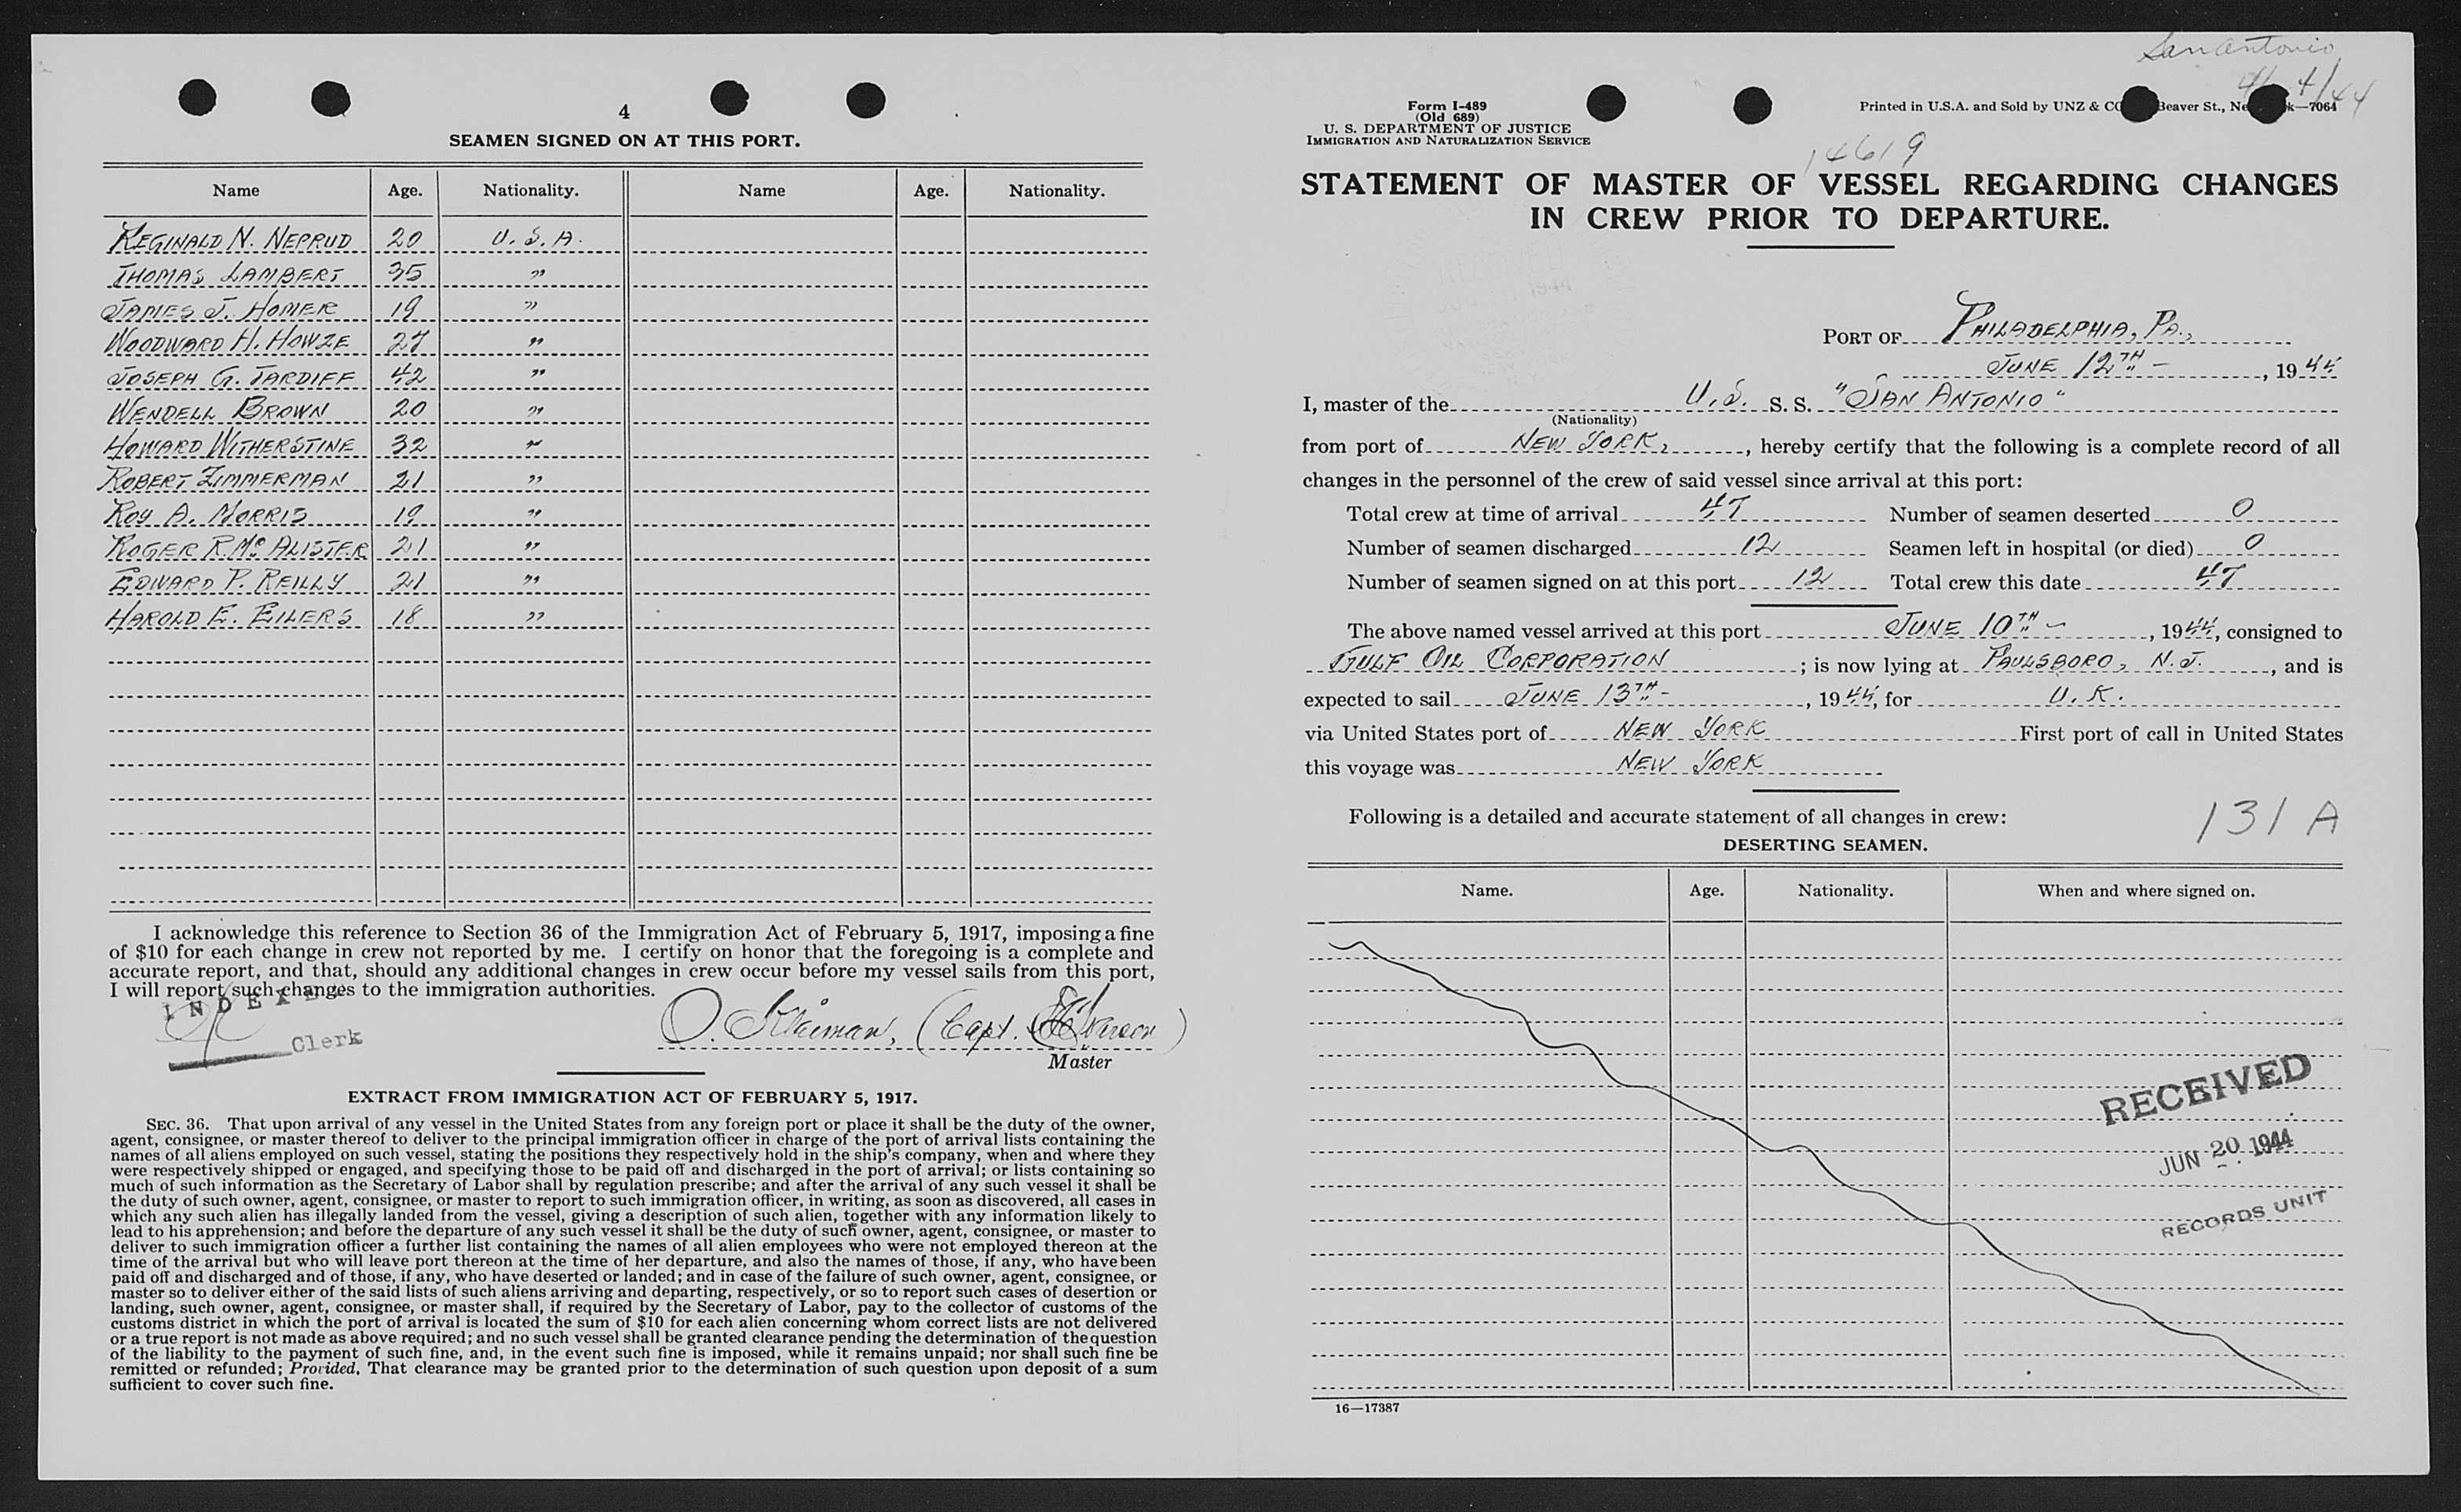 4
SEAMEN SIGNED ON AT THIS PORT.
Name Age. Nationality. Name Age. Nationality.
REGINALD N. NEPRUD 20 U. S. A.
THOMAS LAMBERT 35 "
JAMES J. HOMER 19 "
WOODWARD H. HOWZE 27 "
JOSEPH G. TARDIFF 42 "
WENDELL BROWN 20 "
HOWARD WITHERSTINE 32 "
ROBERT ZIMMERMAN 21 "
ROY A. MORRIS 19 "
ROGER R. Mc ALISTER 21 "
EDWARD P. REILLY 21 "
HAROLD E. EILERS 18 "
I acknowledge this reference to Section 36 of the Immigration Act of February 5, 1917, imposing a fine
of $10 for each change in crew not reported by me. I certify on honor that the foregoing is a complete and
accurate report, and that, should any additional changes in crew occur before my vessel sails from this port,
I will report such changes to the immigration authorities.
INDEXED
Clerk
O. (Capt.
Master
EXTRACT FROM IMMIGRATION ACT OF FEBRUARY 5, 1917.
SEC. 36. That upon arrival of any vessel in the United States from any foreign port or place it shall be the duty of the owner,
agent, consignee, or master thereof to deliver to the principal immigration officer in charge of the port of arrival lists containing the
names of all aliens employed on such vessel, stating the positions they respectively hold in the ship's company, when and where they
were respectively shipped or engaged, and specifying those to be paid off and discharged in the port of arrival; or lists containing so
much of such information as the Secretary of Labor shall by regulation prescribe; and after the arrival of any such vessel it shall be
the duty of such owner, agent, consignee, or master to report to such immigration officer, in writing, as soon as discovered, all cases in
which any such alien has illegally landed from the vessel, giving a description of such alien, together with any information likely to
lead to his apprehension; and before the departure of any such vessel it shall be the duty of such owner, agent, consignee, or master to
deliver to such immigration officer a further list containing the names of all alien employees who were not employed thereon at the
time of the arrival but who will leave port thereon at the time of her departure, and also the names of those, if any, who have been
paid off and discharged and of those, if any, who have deserted or landed; and in case of the failure of such owner, agent, consignee, or
master so to deliver either of the said lists of such aliens arriving and departing, respectively, or so to report such cases of desertion or
landing, such owner, agent, consignee, or master shall, if required by the Secretary of Labor, pay to the collector of customs of the
customs district in which the port of arrival is located the sum of $10 for each alien concerning whom correct lists are not delivered
or a true report is not made as above required; and no such vessel shall be granted clearance pending the determination of the question
of the liability to the payment of such fine, and, in the event such fine is imposed, while it remains unpaid; nor shall such fine be
remitted or refunded; Provided, That clearance may be granted prior to the determination of such question upon deposit of a sum
sufficient to cover such fine.
San Antonio
4/44
Form I-489
(Old 689)
U. S. DEPARTMENT OF JUSTICE
IMMIGRATION AND NATURALIZATION SERVICE
Printed in U.S.A. and Sold by UNZ & CO Beaver St., Ne k—7064
14619
STATEMENT OF MASTER OF VESSEL REGARDING CHANGES
IN CREW PRIOR TO DEPARTURE.
PORT OF PHILADELPHIA, PA.,
JUNE 12TH - , 1944
I, master of the U.S. S. S. "SAN ANTONIO"
(Nationality)
from port of NEW YORK, , hereby certify that the following is a complete record of all
changes in the personnel of the crew of said vessel since arrival at this port:
Total crew at time of arrival 47 Number of seamen deserted 0
Number of seamen discharged 12 Seamen left in hospital (or died) 0
Number of seamen signed on at this port 12 Total crew this date 47
The above named vessel arrived at this port JUNE 10TH - , 1944, consigned to
GULF OIL CORPORATION ; is now lying at PAULSBORO, N. J. , and is
expected to sail JUNE 13TH - , 1944, for U. K.
via United States port of NEW YORK First port of call in United States
this voyage was NEW YORK
Following is a detailed and accurate statement of all changes in crew:
131 A
DESERTING SEAMEN.
Name. Age. Nationality. When and where signed on.
RECEIVED
JUN 20 1944
RECORDS UNIT
16—17387